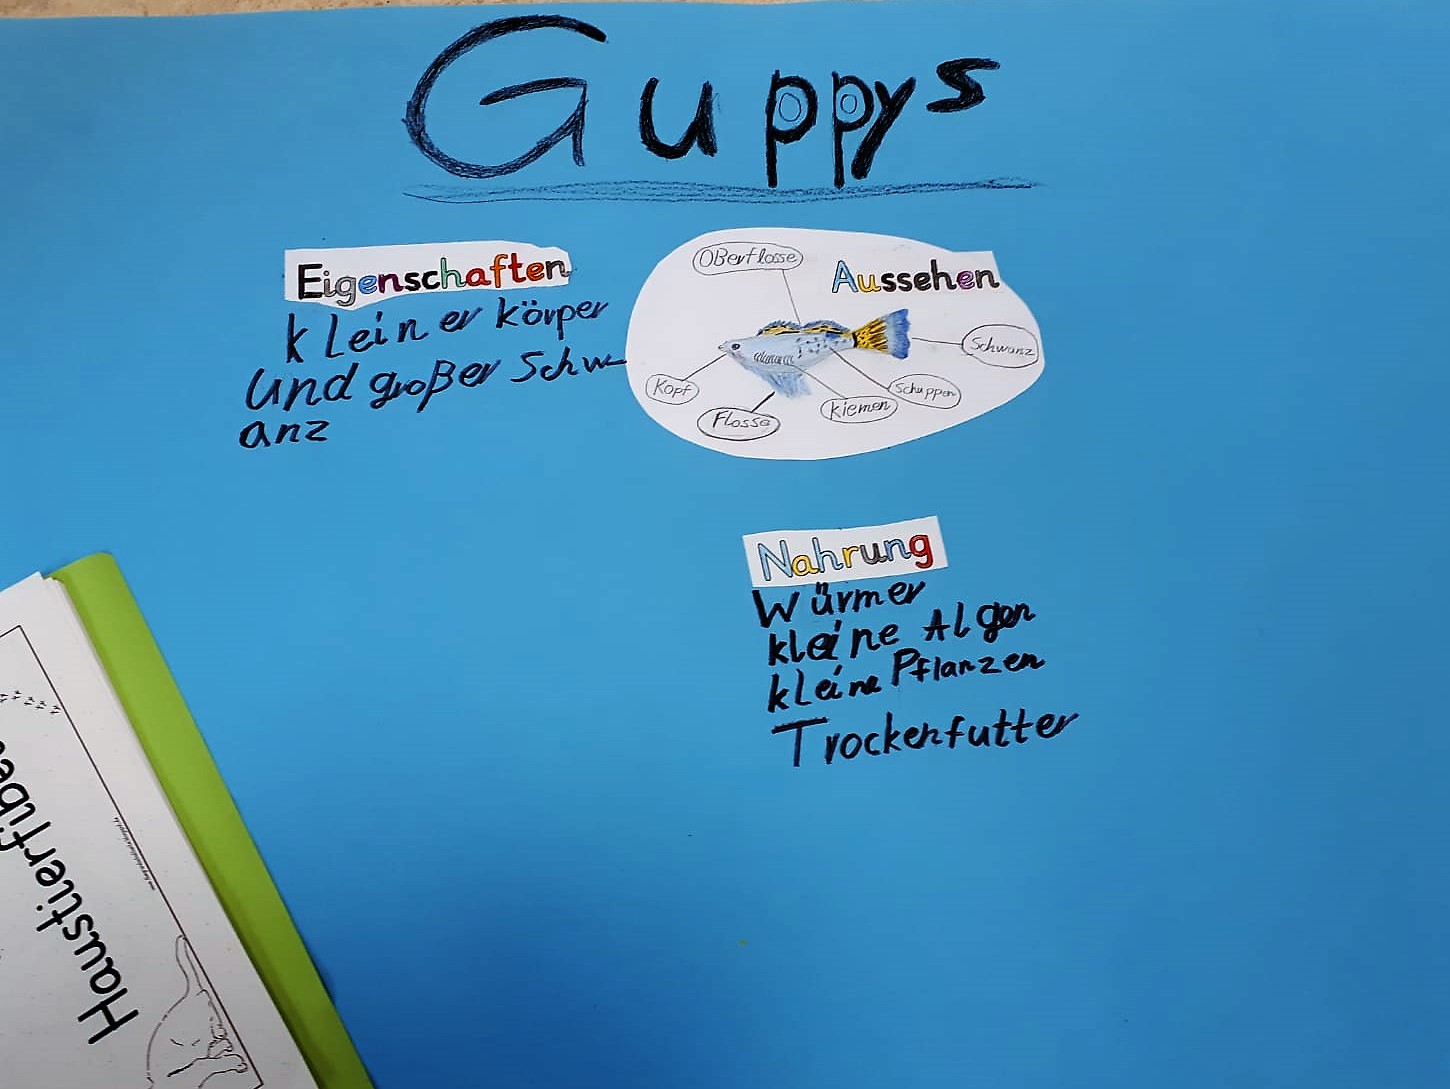 Guppys
Eigenschaften
kleiner körper
und großer Schw-
anz
Aussehen
Oberflosse
Schwanz
Kopf
Schuppen
Kiemen
Flosse
Nahrung
Würmer
kleine Algen
kleine Pflanzen
Trockenfutter
Haustierfibe